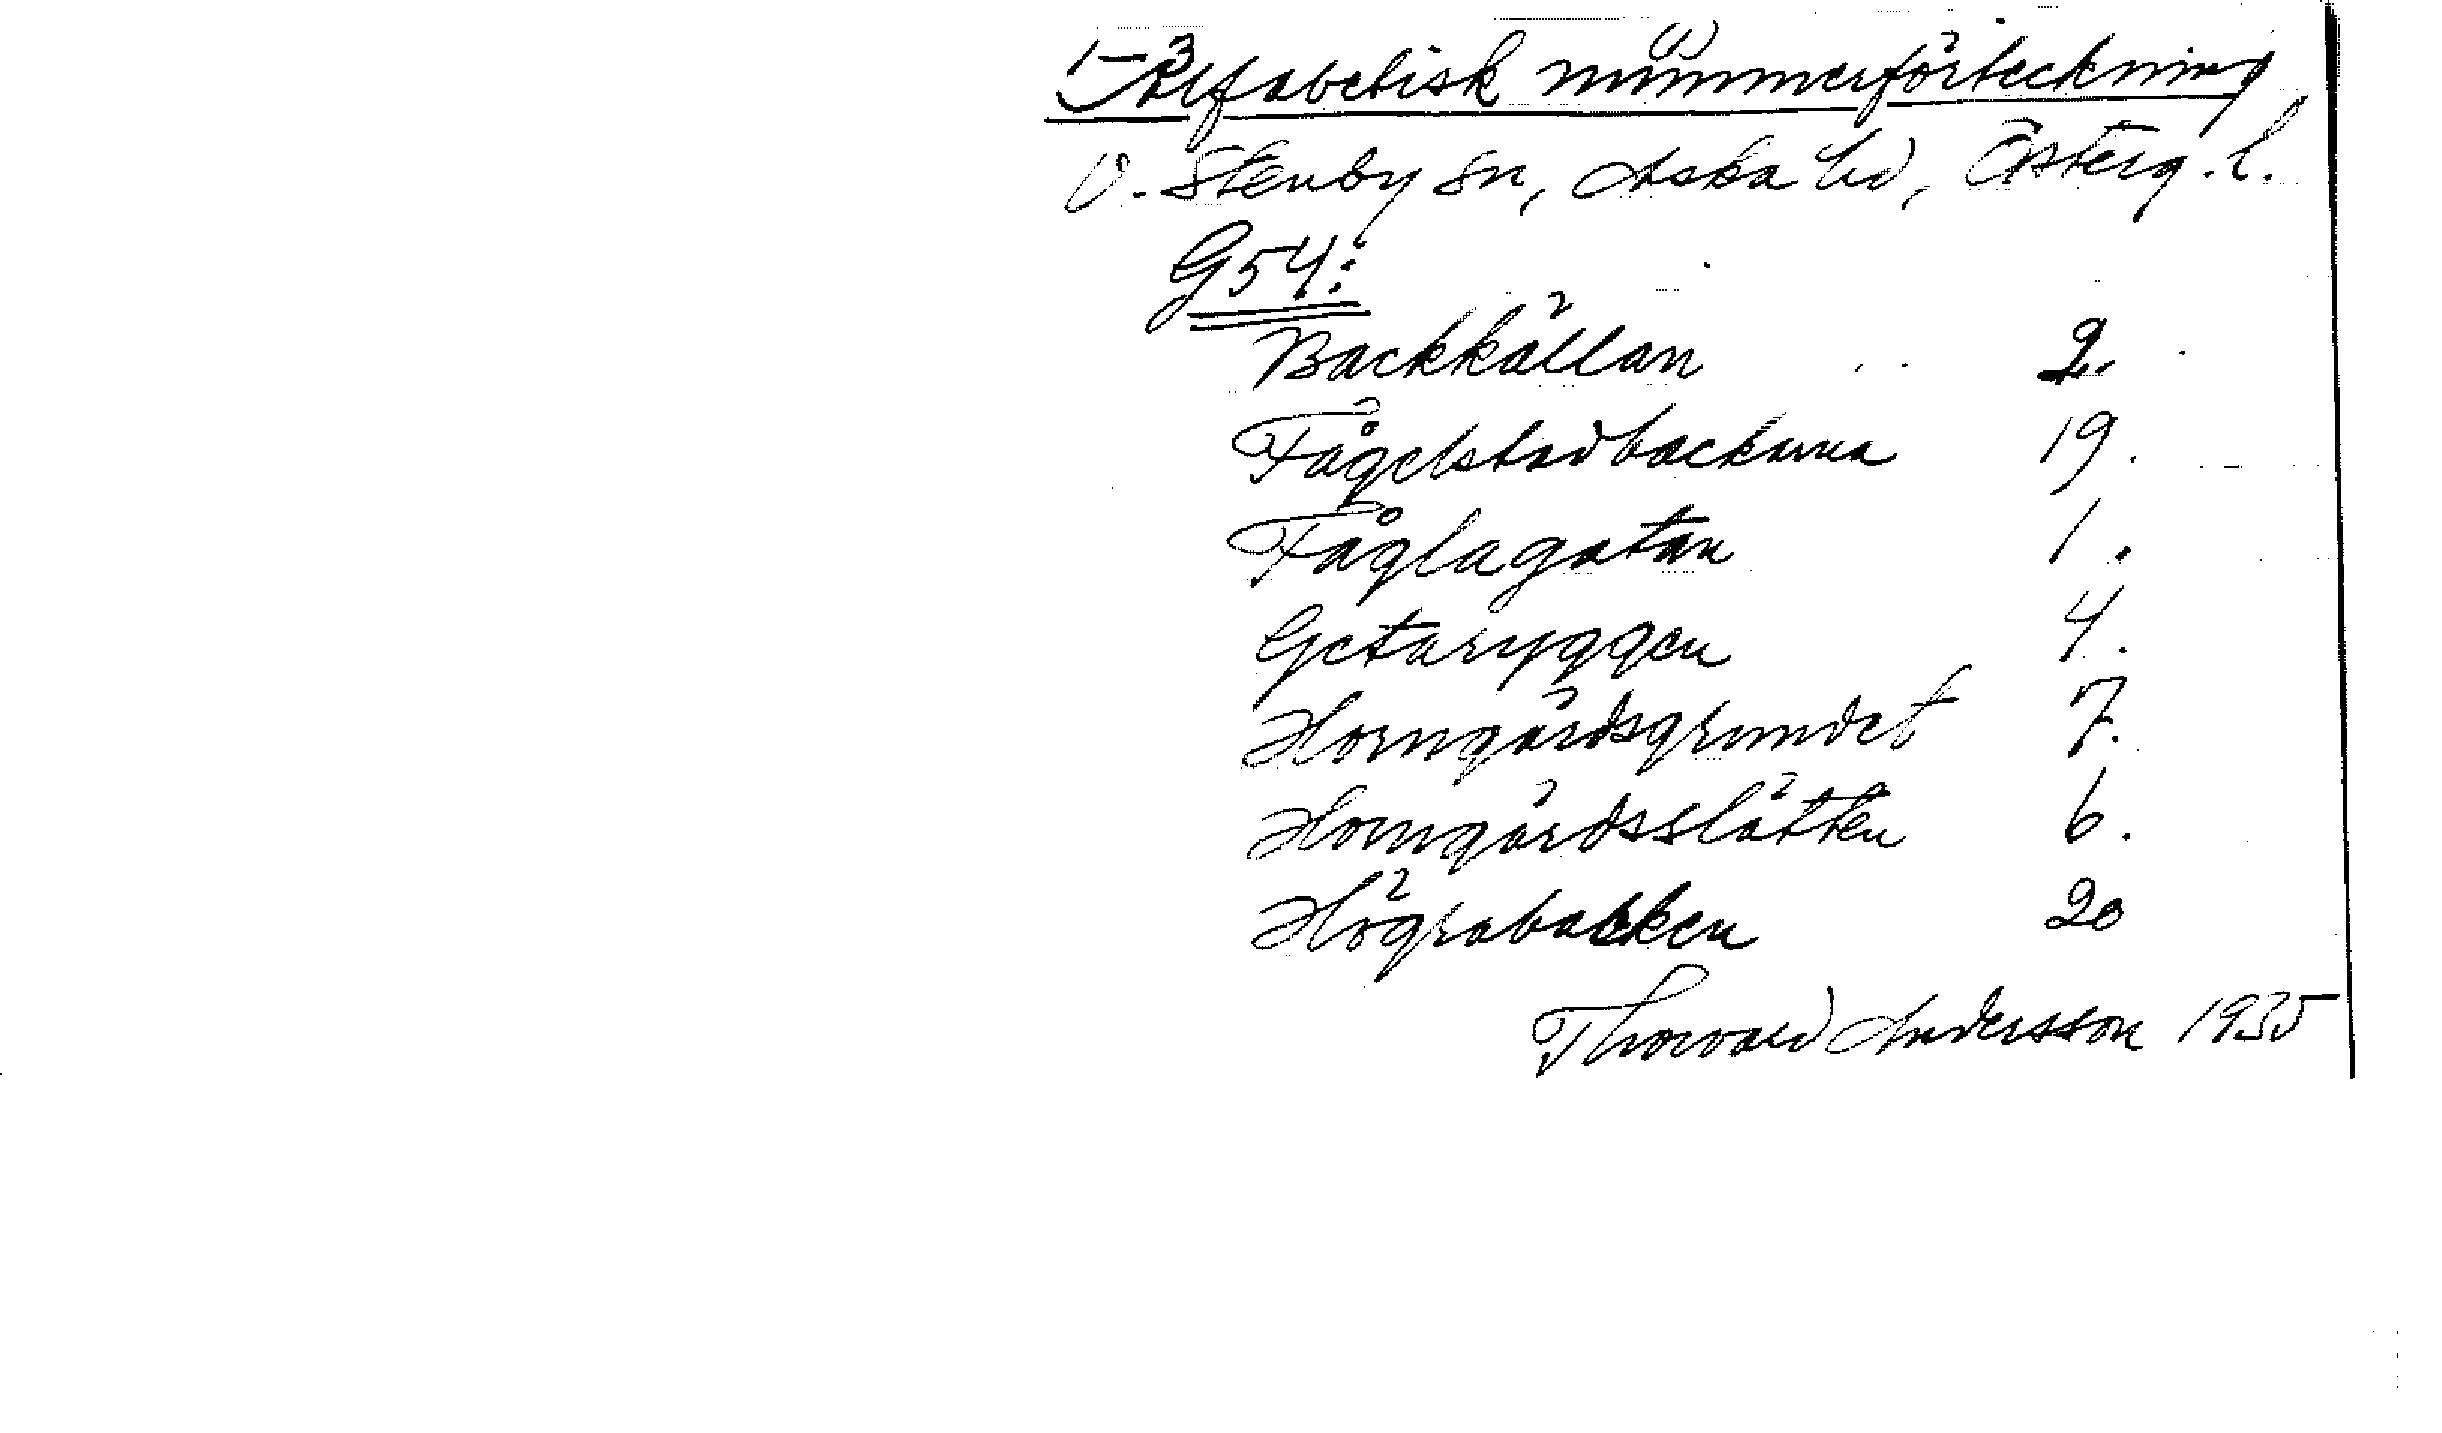 1-3
Alfabetisk nummerförteckning
V. Stenby Sn, Aska hd, Österg. l.
G54:
Backkällan 2.
Fågelstadbackarna 19.
Fåglagatan 1.
Getaryggen 4.
Horngårdsgrundet 7.
Horngårdsslätten 6.
Högrabacken 20
Thorvald Andersson 1935